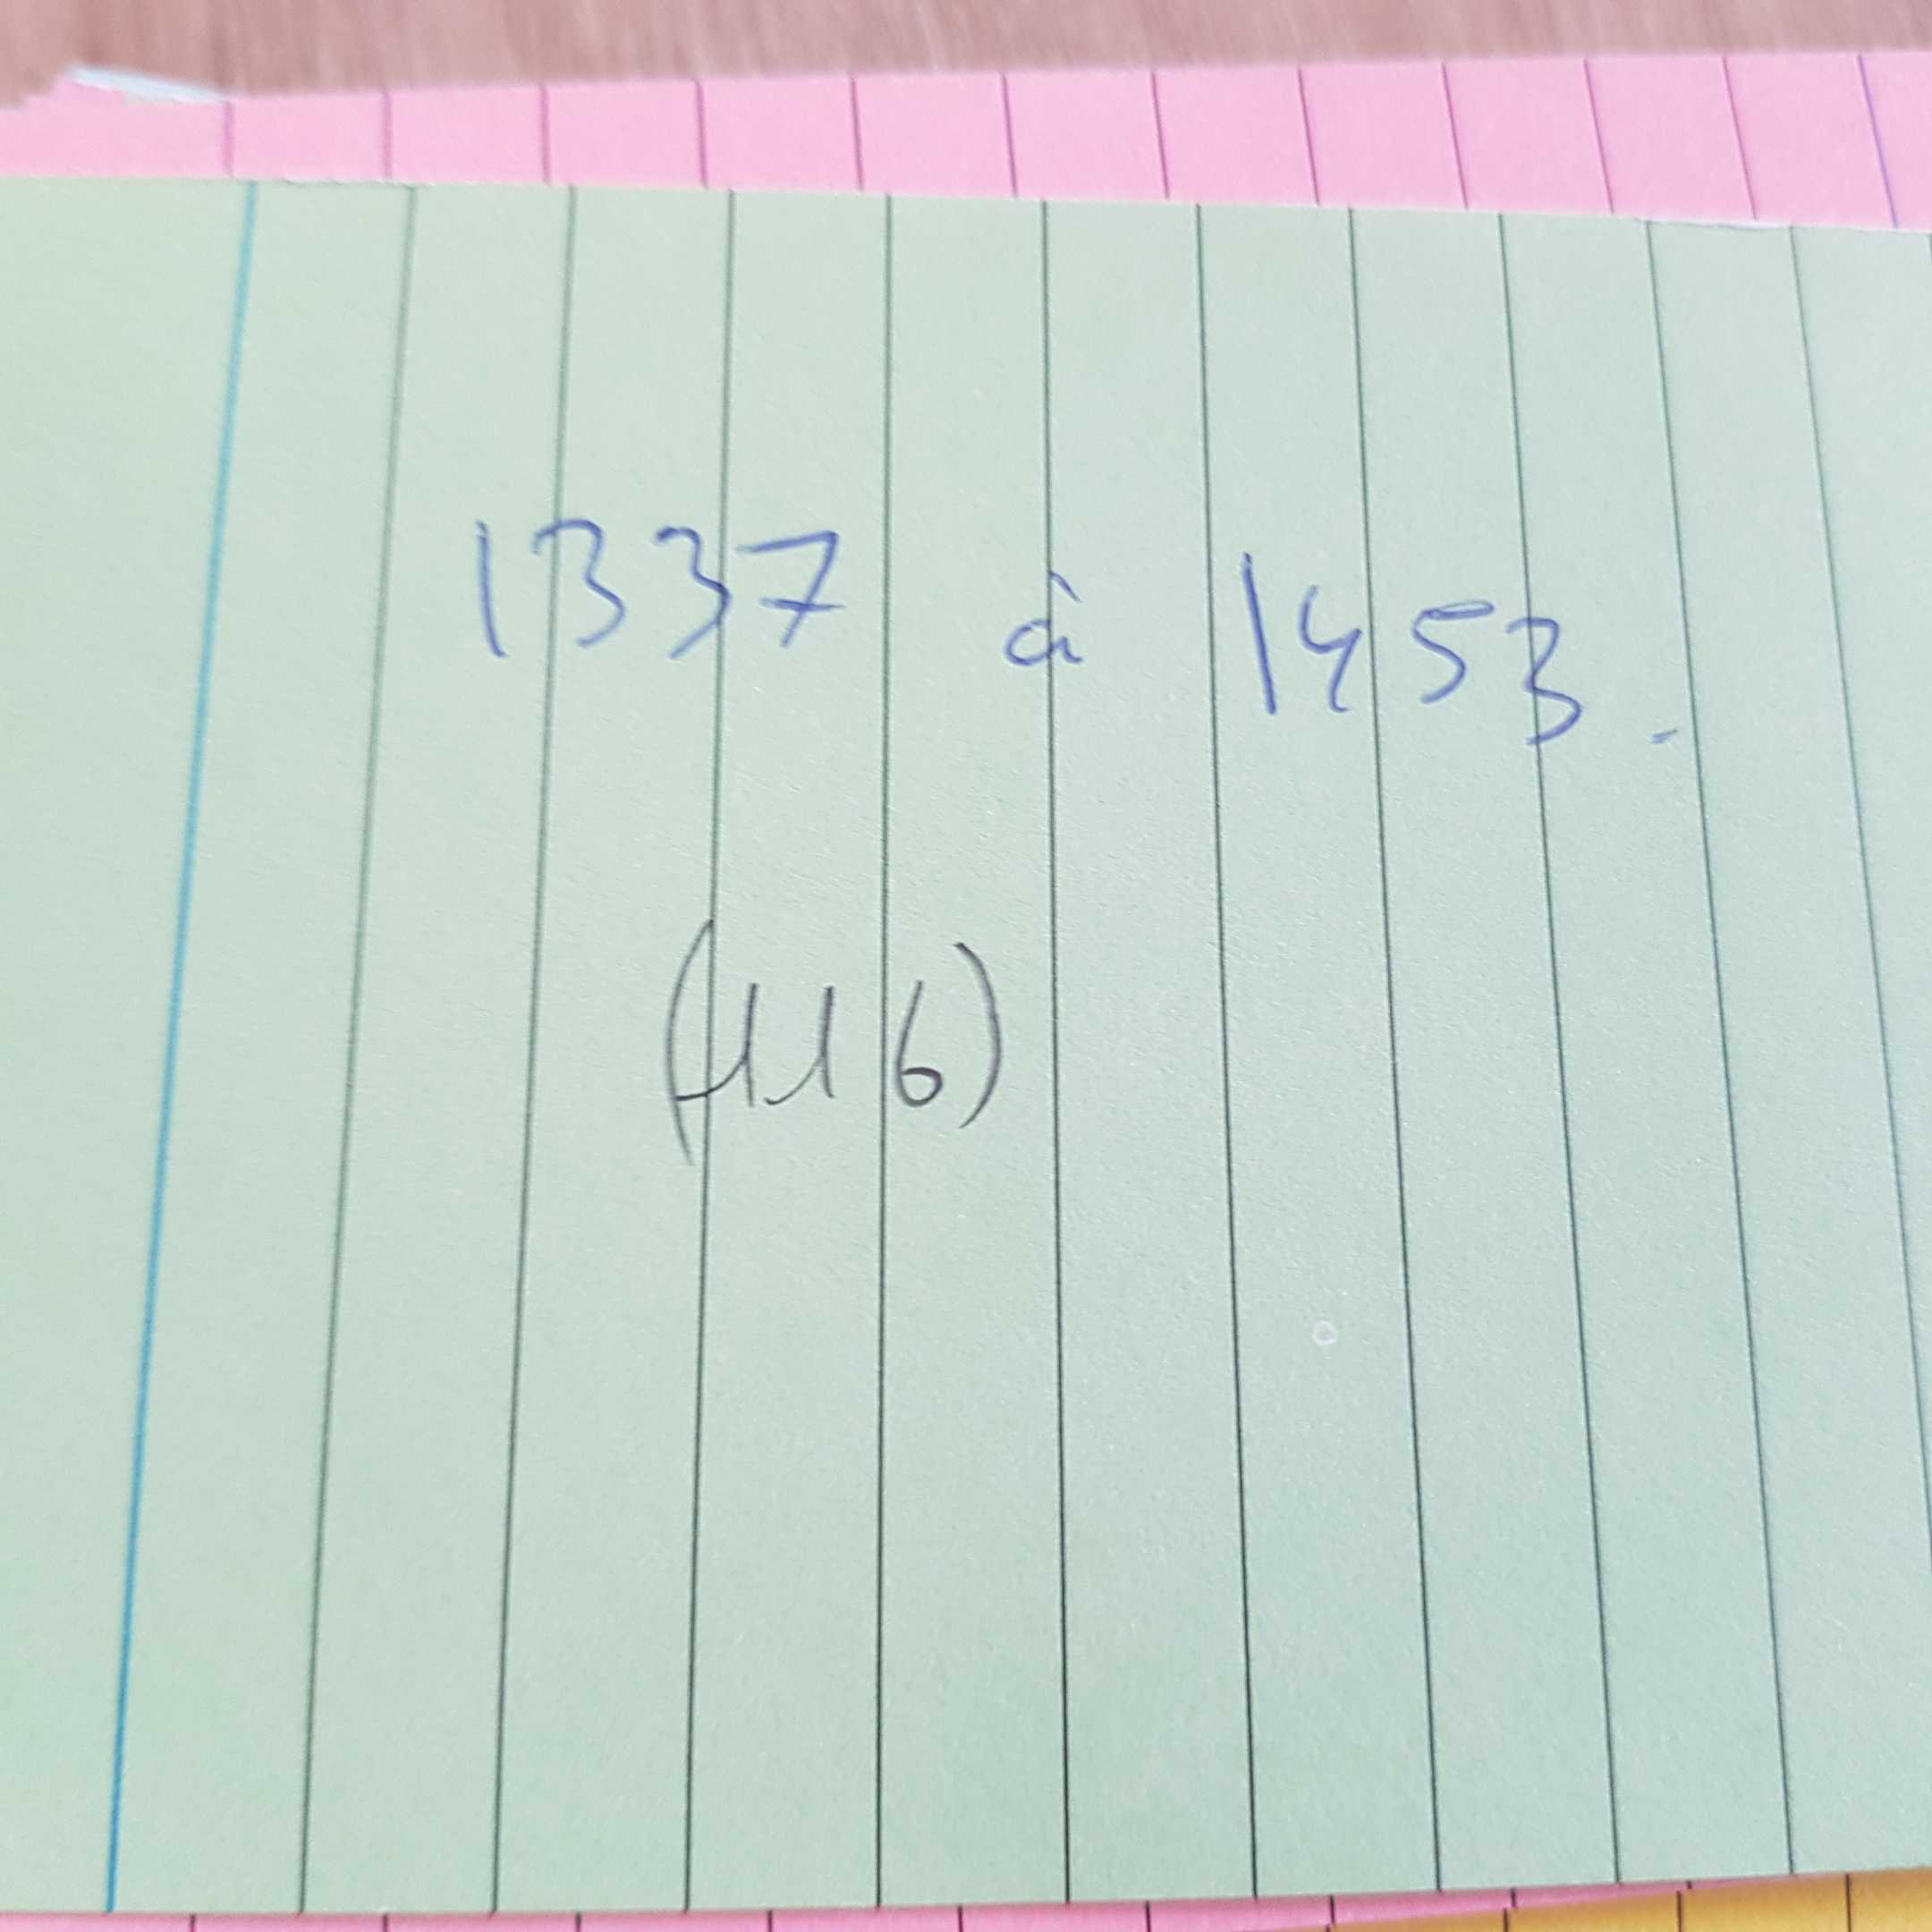 1337 à 1453.
(116)